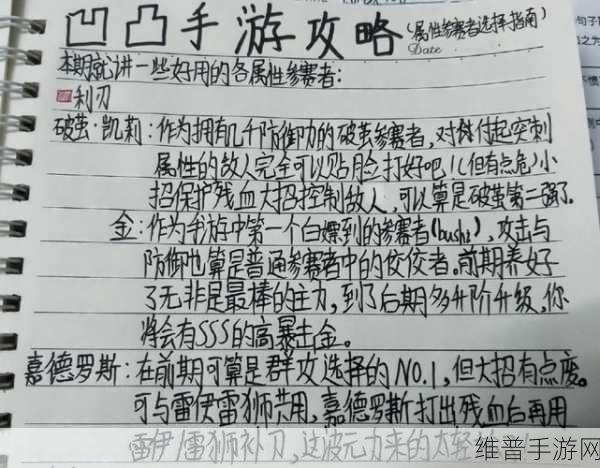 凹凸手游攻略(属性参赛者选择指南)
Date
本期就讲一些好用的各属性参赛者:
利刃
破茧·凯莉:作为拥有几千防御力的破茧参赛者,对付起突刺
属性的敌人完全可以贴脸打好吧!(但有点危)小
招保护残血大招控制敌人,可以算是破茧第一强了。
金:作为手游中第一个白嫖到的参赛者(bushi),攻击与
防御也算是普通参赛者中的佼佼者。前期养好
了无非是最棒的主力,到了后期多升阶升级,你
将会有SSS的高暴击金。
嘉德罗斯:在前期可算是群攻选择的NO.1,但大招有点废。
可与雷伊雷狮共用,嘉德罗斯打出残血后再用
雷伊/雷狮补刀,这波元力来的太轻
维普手游网